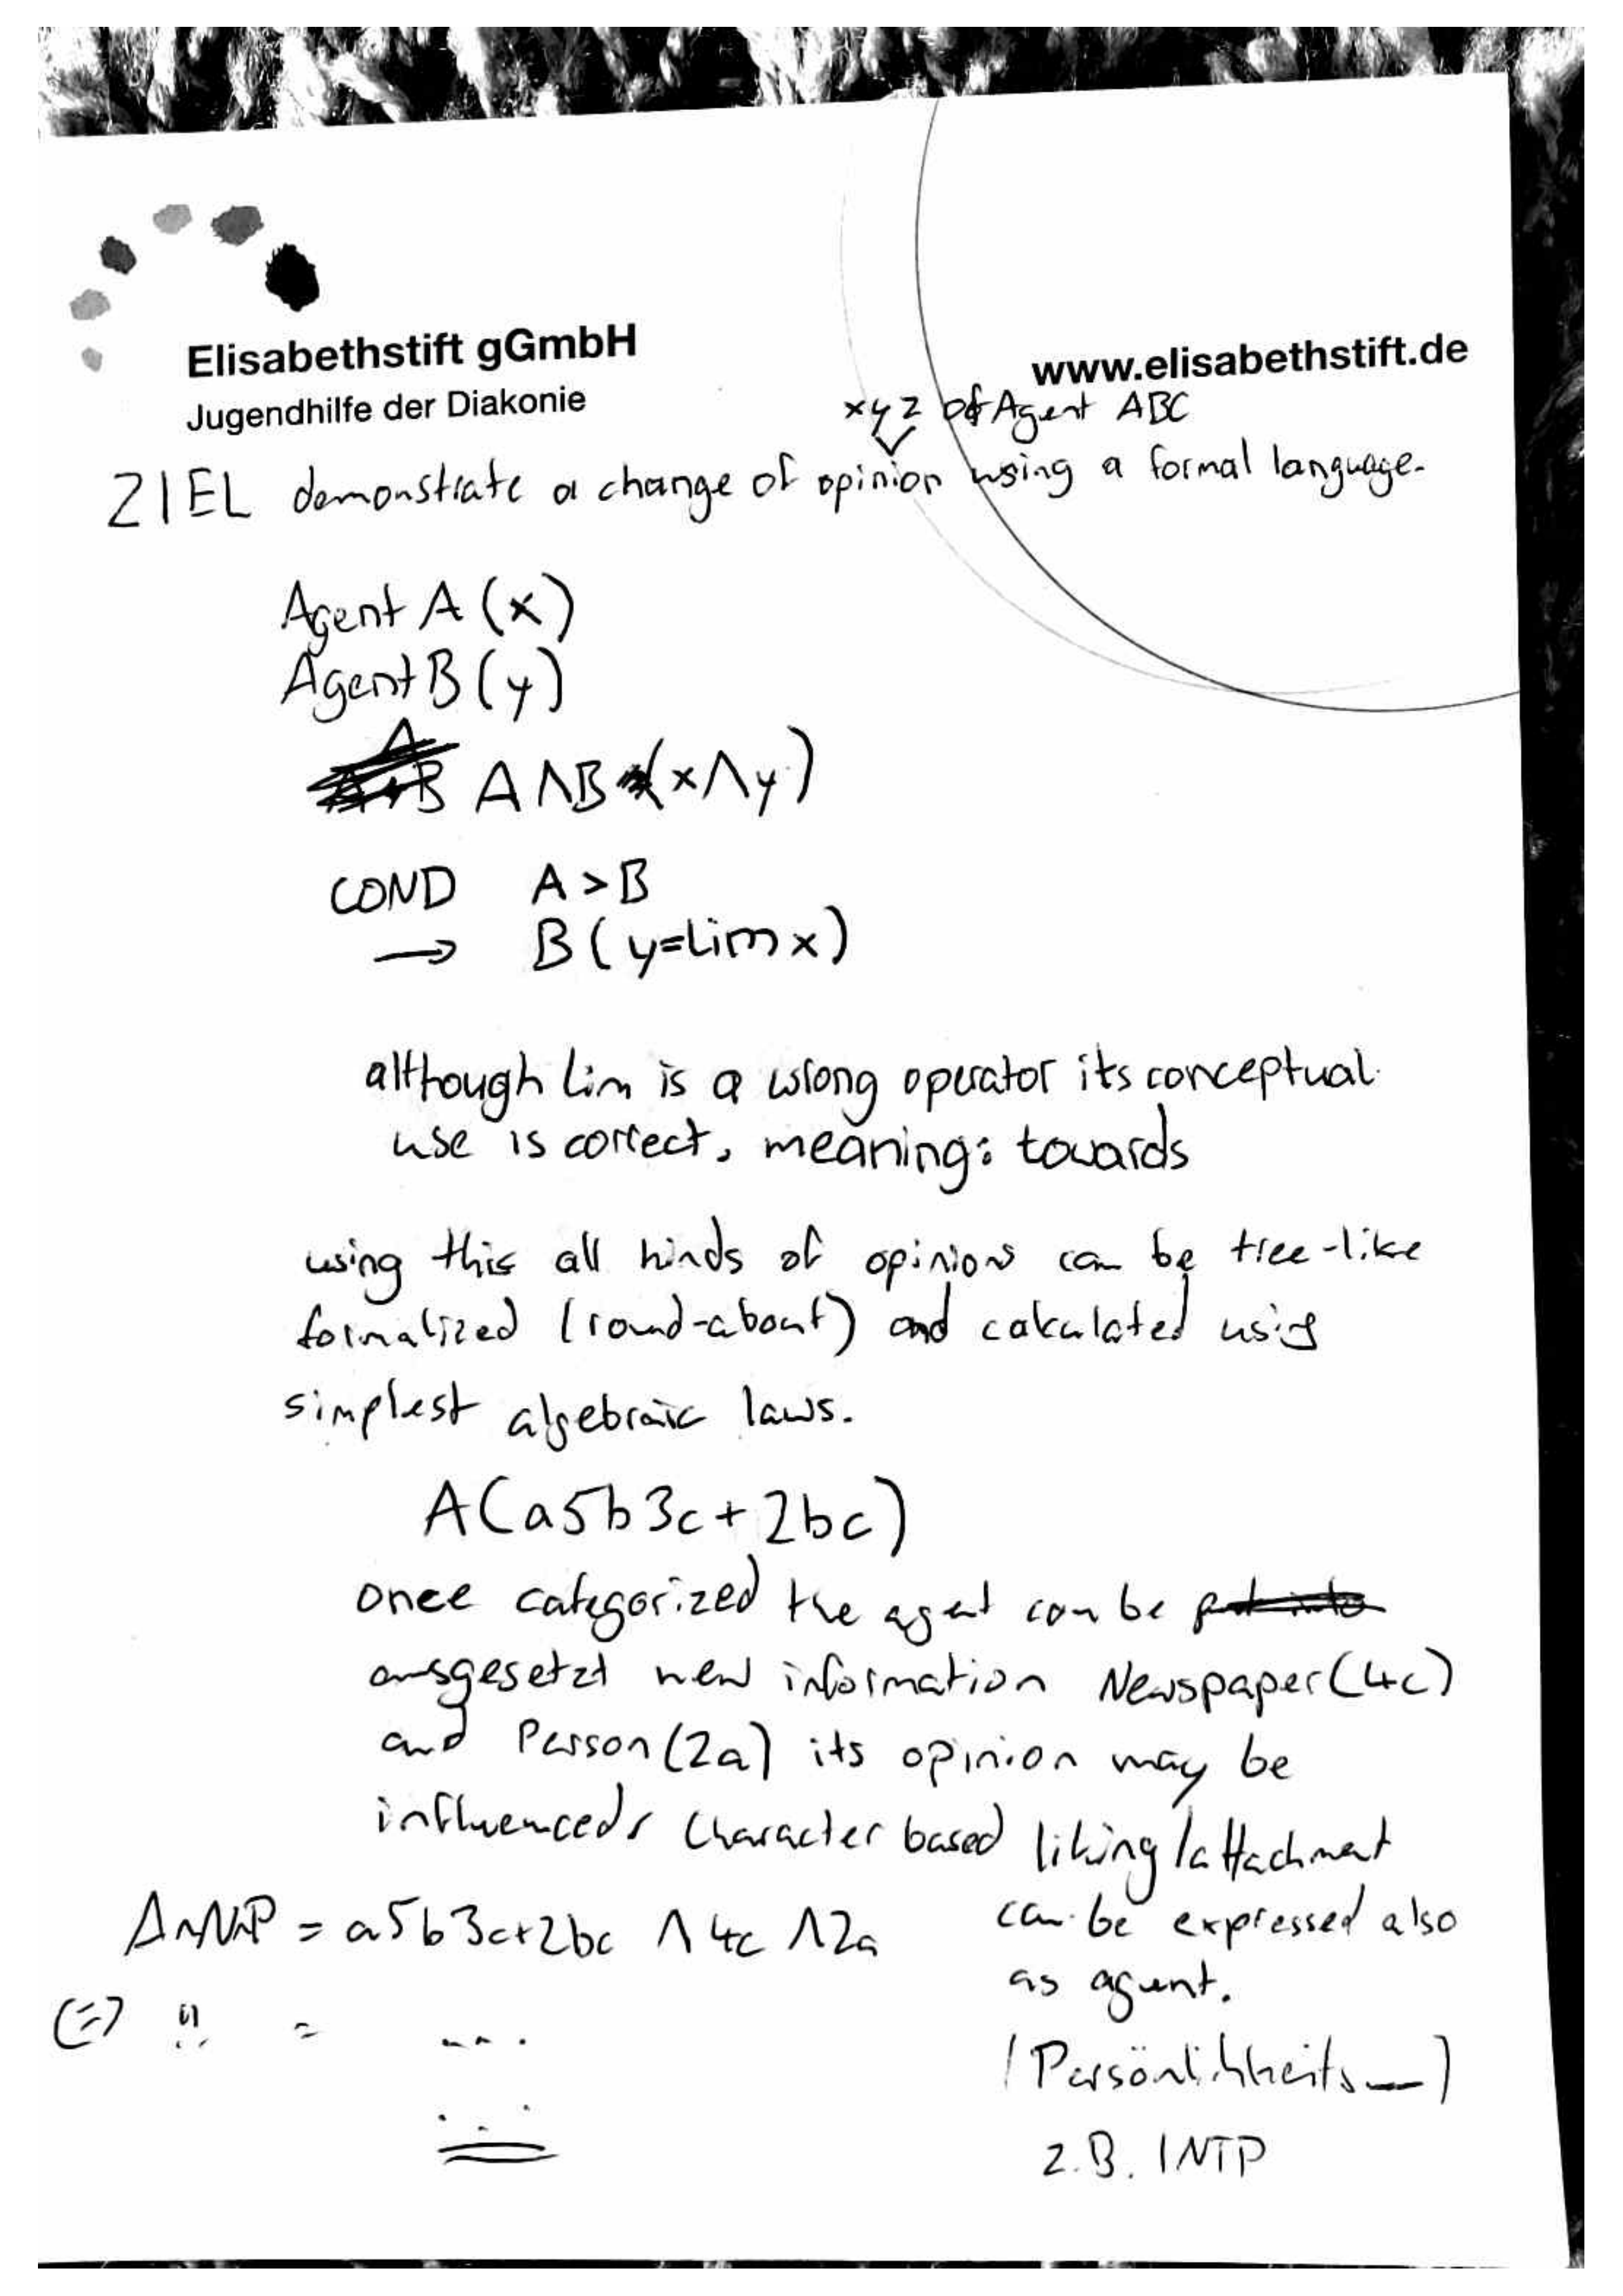 Elisabethstift gGmbH
www.elisabethstift.de
Jugendhilfe der Diakonie
xyz of Agent ABC
ZIEL demonstrate a change of opinion using a formal language.
Agent A (x)
Agent B (y)
A ∧ B (x ∧ y)
COND A > B
→ B ( y = Lim x )
although Lim is a wrong operator its conceptual
use is correct, meaning: towards
using this all kinds of opinions can be tree-like
formalized (round-about) and calculated using
simplest algebraic laws.
A(a5b3c+2bc)
once categorized the agent can be
ausgesetzt new information Newspaper(4c)
and Person(2a) its opinion may be
influenced, Character based liking/attachment
can be expressed also
as agent.
(Persönlichkeits—)
z.B. INTP
A∧N∧P = a5b3c+2bc ∧ 4c ∧ 2a
(=) " = ...
...